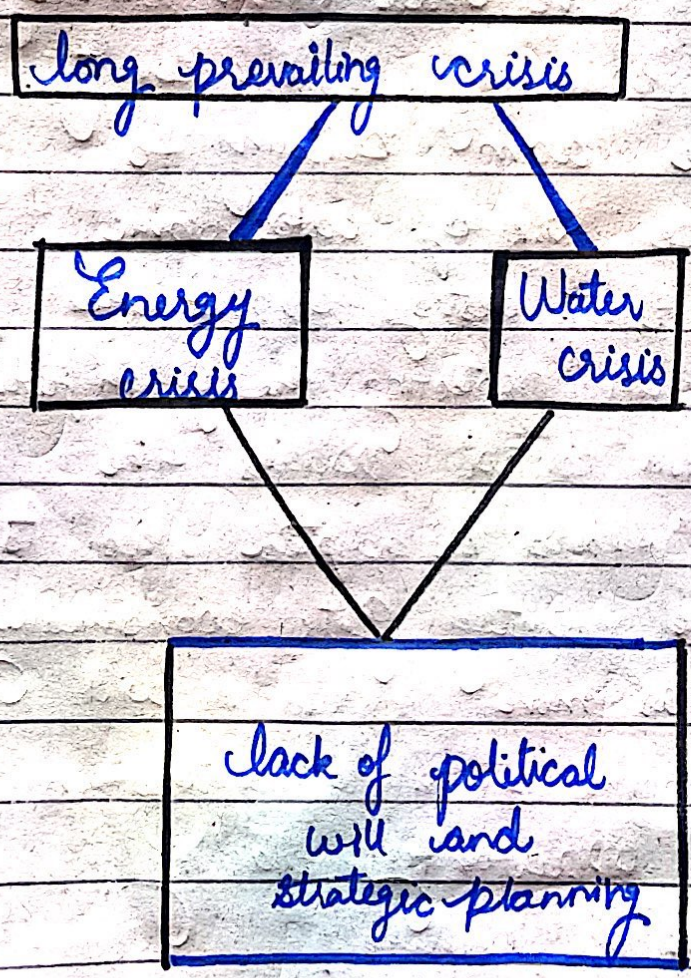 long prevailing crisis
Energy
crisis
Water
crisis
lack of political
will and
strategic planning